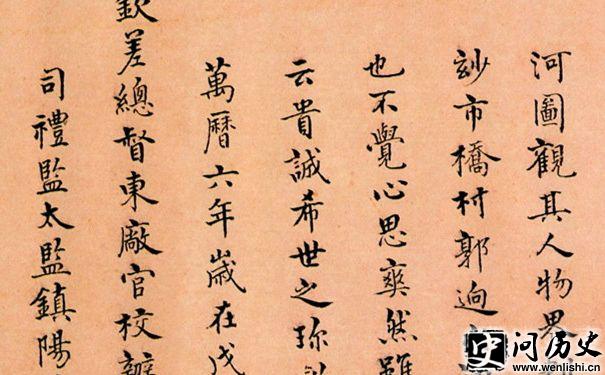 河圖觀其人物界
玅市橋村郭迥
也不覺心思爽然雖
云貴誠希世之珎
萬曆六年歲在戊
欽差總督東廠官校辦
司禮監太監鎮陽
问历史
www.wenlishi.cn